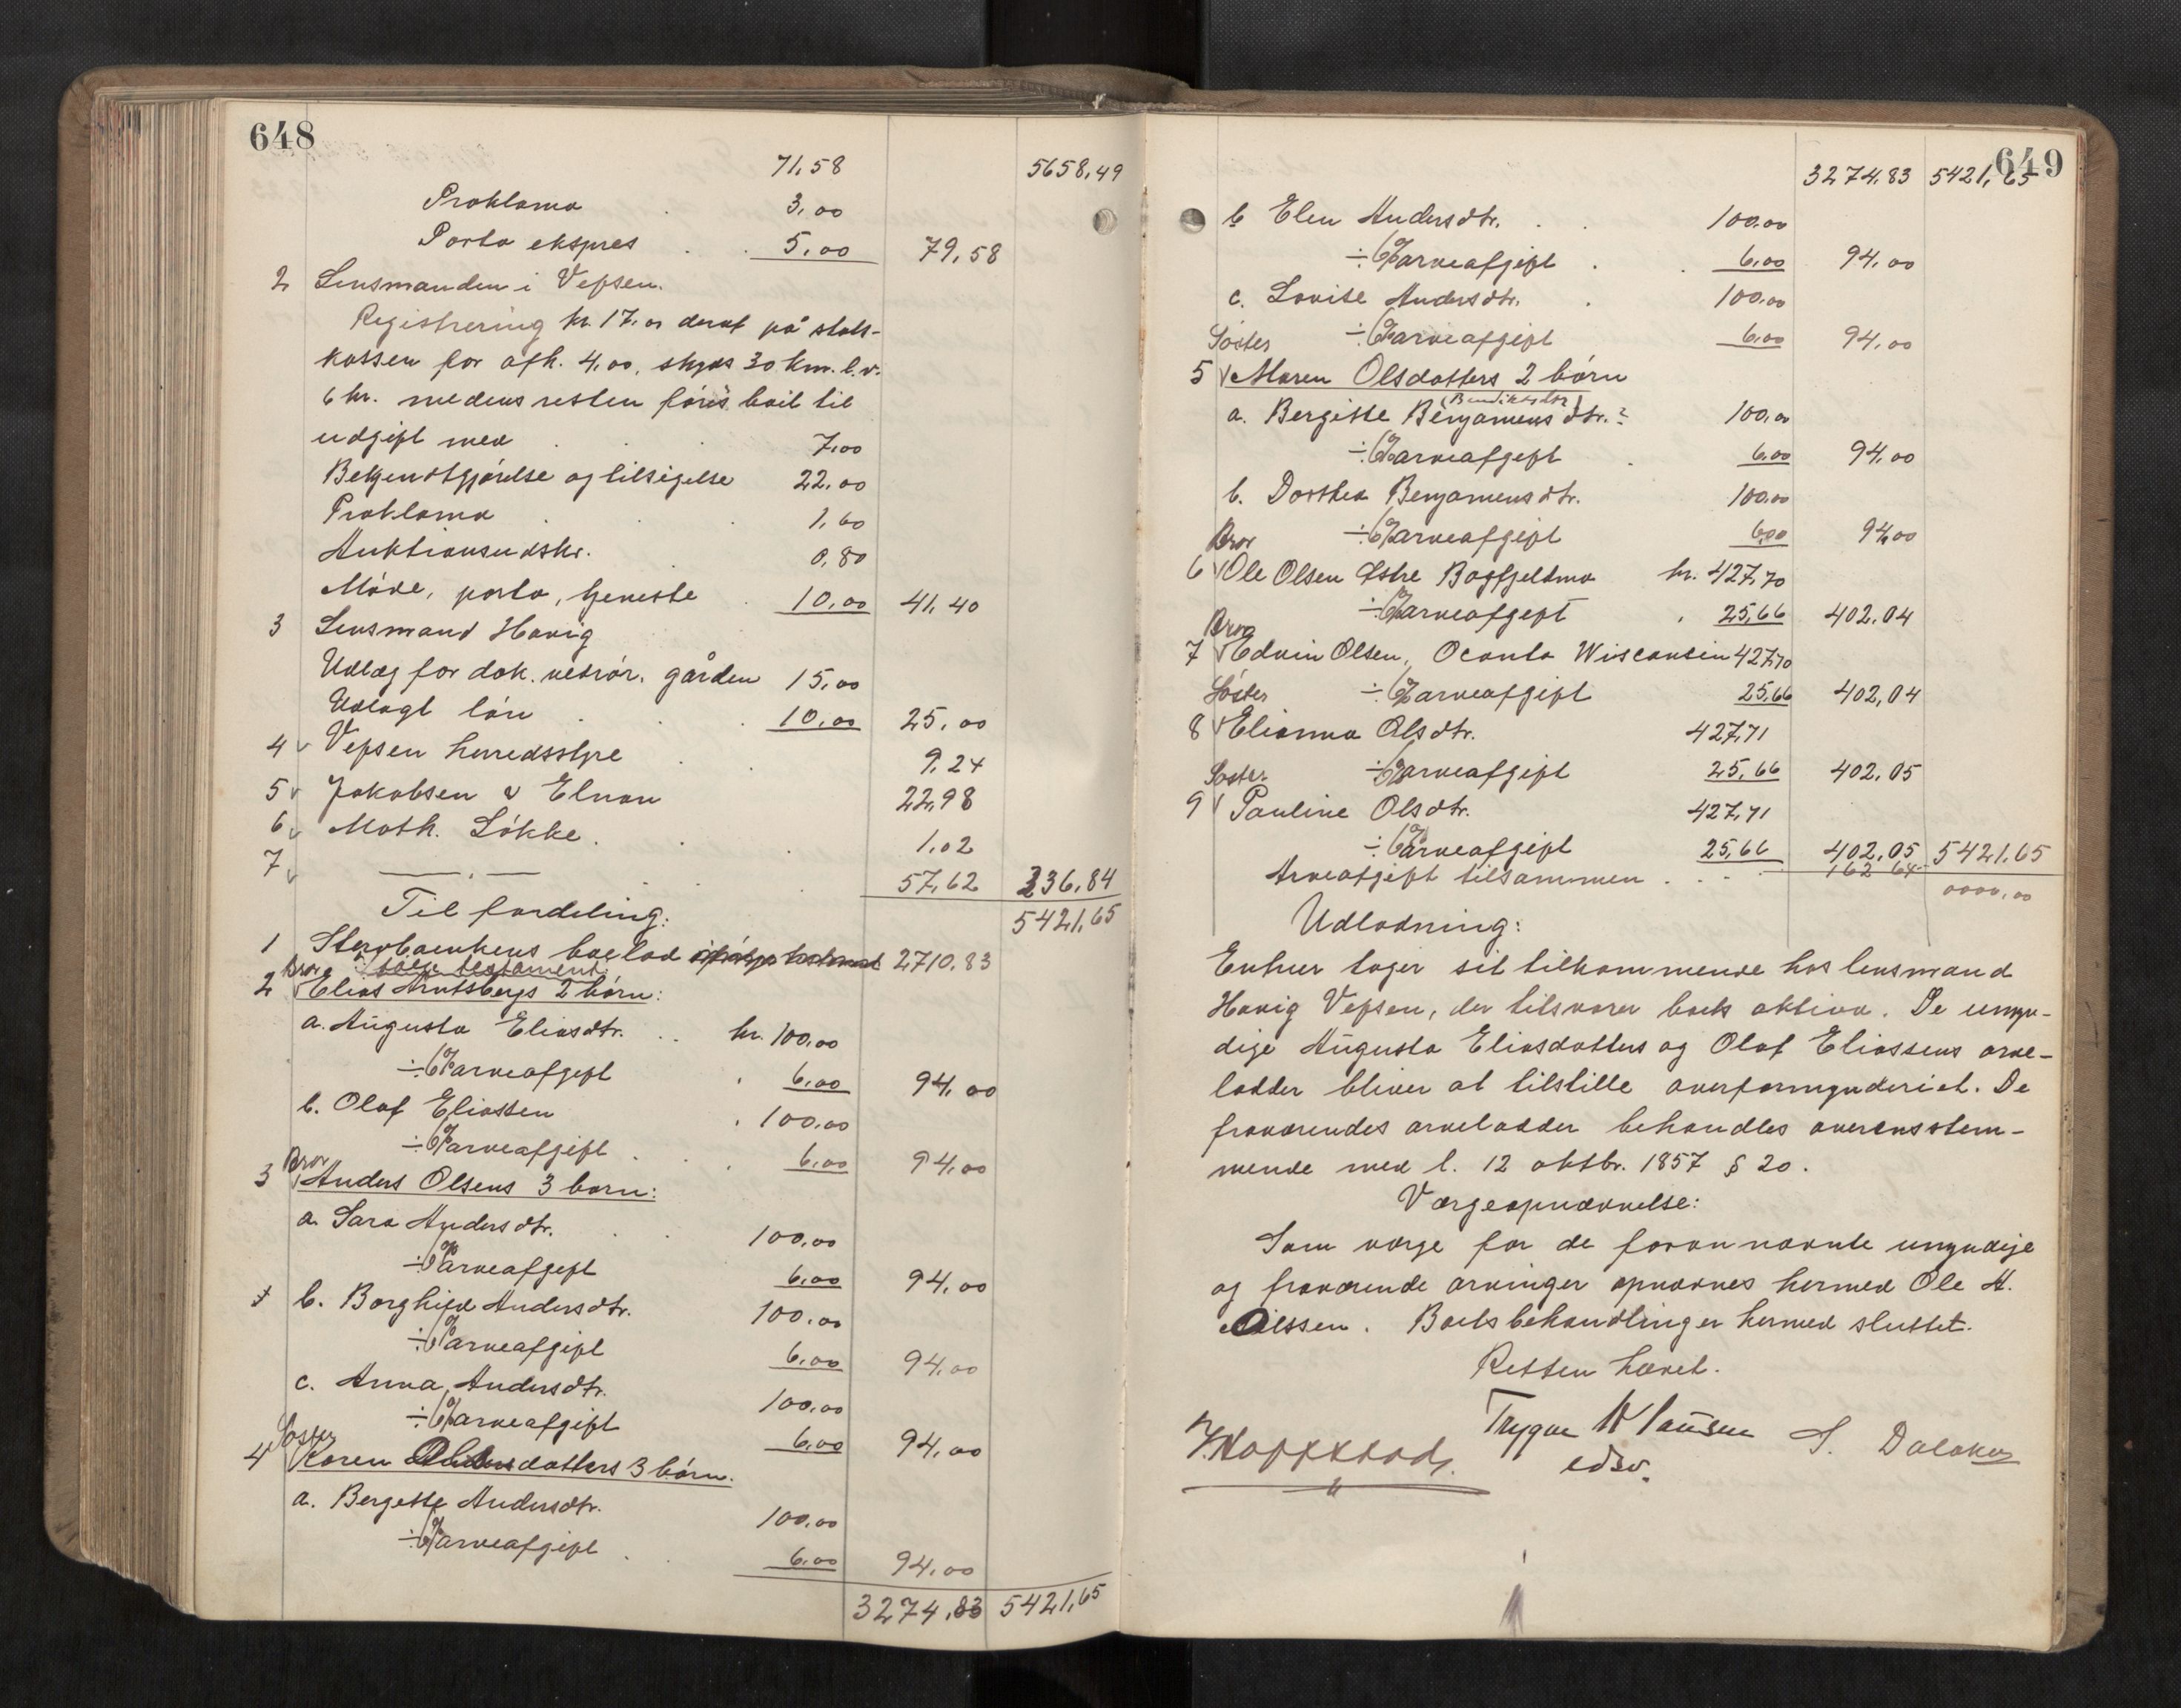 648
71,58 5658,49
Proklama . 3,00
Porto ekspres . . 5,00 79,58
2 Lensmanden i Vefsen.
Registrering kr. 17,00 deraf på stats-
kassen for afh. 4,00, skyds 30 km. l.v.
6 kr. medens resten føres boit til
udgift med . . . 7,00
Bekjendtgjørelse og tilsigelse 22,00
Proklama . . 1,60
Auktionsudskr. 0,80
Møde, porto, tjeneste . 10,00 41,40
3 Lensmand Havig
Udlæg for dok. vedrør. gården 15,00
Udlagt løn . . . 10,00 25,00
4 v Vefsen herredsstyre . . 9,24
5 v Jakobsen & Elnan 22,98
6 v Math. Løkke . . . 1,02
7 v —— " —— . . . 57,62 236,84
Til fordeling: 5421,65
1 Stervboenkens boslod ifølge testament 2710,83
ifølge testament
Bror
2 v Elias Arntsbergs 2 børn:
a. Augusta Eliasdtr. . . kr. 100,00
÷ 6% arveafgift . 6,00 94,00
b. Olaf Eliassen . 100,00
÷ 6% arveafgift . . . 6,00 94,00
Bror
3 v Anders Olsens 3 børn:
a. Sara Andersdtr. . . 100,00
÷ 6% arveafgift 6,00 94,00
b. Borghild Andersdtr. 100,00
÷ 6% arveafgift 6,00 94,00
c. Anna Andersdtr. 100,00
÷ 6% arveafgift 6,00 94,00
Søster
4 Karen Olsdatters 3 børn.
a. Bergette Andersdtr. 100,00
÷ 6% arveafgift . . 6,00 94,00
3274,83 5421,65
649
3274,83 5421,65
b Elen Andersdtr. . . 100,00
÷ 6% arveafgift . . 6,00 94,00
c. Lovise Andersdtr. . 100,00
÷ 6% arveafgift 6,00 94,00
Søster
5 v Maren Olsdatters 2 børn
(Benediktsdtr)
a. Bergitte Benjamensdtr.? 100,00
÷ 6% arveafgift . 6,00 94,00
b. Dorthea Benjamensdtr. 100,00
÷ 6% arveafgift 6,00 94,00
Bror
6 v Ole Olsen Østre Bagfjeldmo kr. 427,70
÷ 6% arveafgift . 25,66 402,04
Bror
7 v Edvin Olsen, Oconto Wisconsin 427,70
÷ 6% arveafgift 25,66 402,04
Søster
8 v Elianna Olsdtr. 427,71
÷ 6% arveafgift 25,66 402,05
Søster
9 v Pauline Olsdtr. 427,71
÷ 6% arveafgift 25,66 402,05 5421,65
Arveafgift tilsammen . . . . 162 64 0000,00
Udlodning:
Enhver tager sit tilkommende hos lensmand
Havig Vefsen, der tilsvarer boets aktiva. De umyn-
dige Augusta Eliasdatters og Olaf Eliassens arve-
lodder bliver at tilstille overformynderiet. De
fraværendes arvelodder behandles overensstem-
mende med l. 12 oktbr. 1857 § 20.
Værgeopnævnelse:
Som værge for de forannævnte umyndige
og fraværende arvinger opnævnes hermed Ole A.
Olssen. Boets behandling er hermed sluttet.
Retten hævet.
Trygve W Hansen S. Dalaker
edsv.